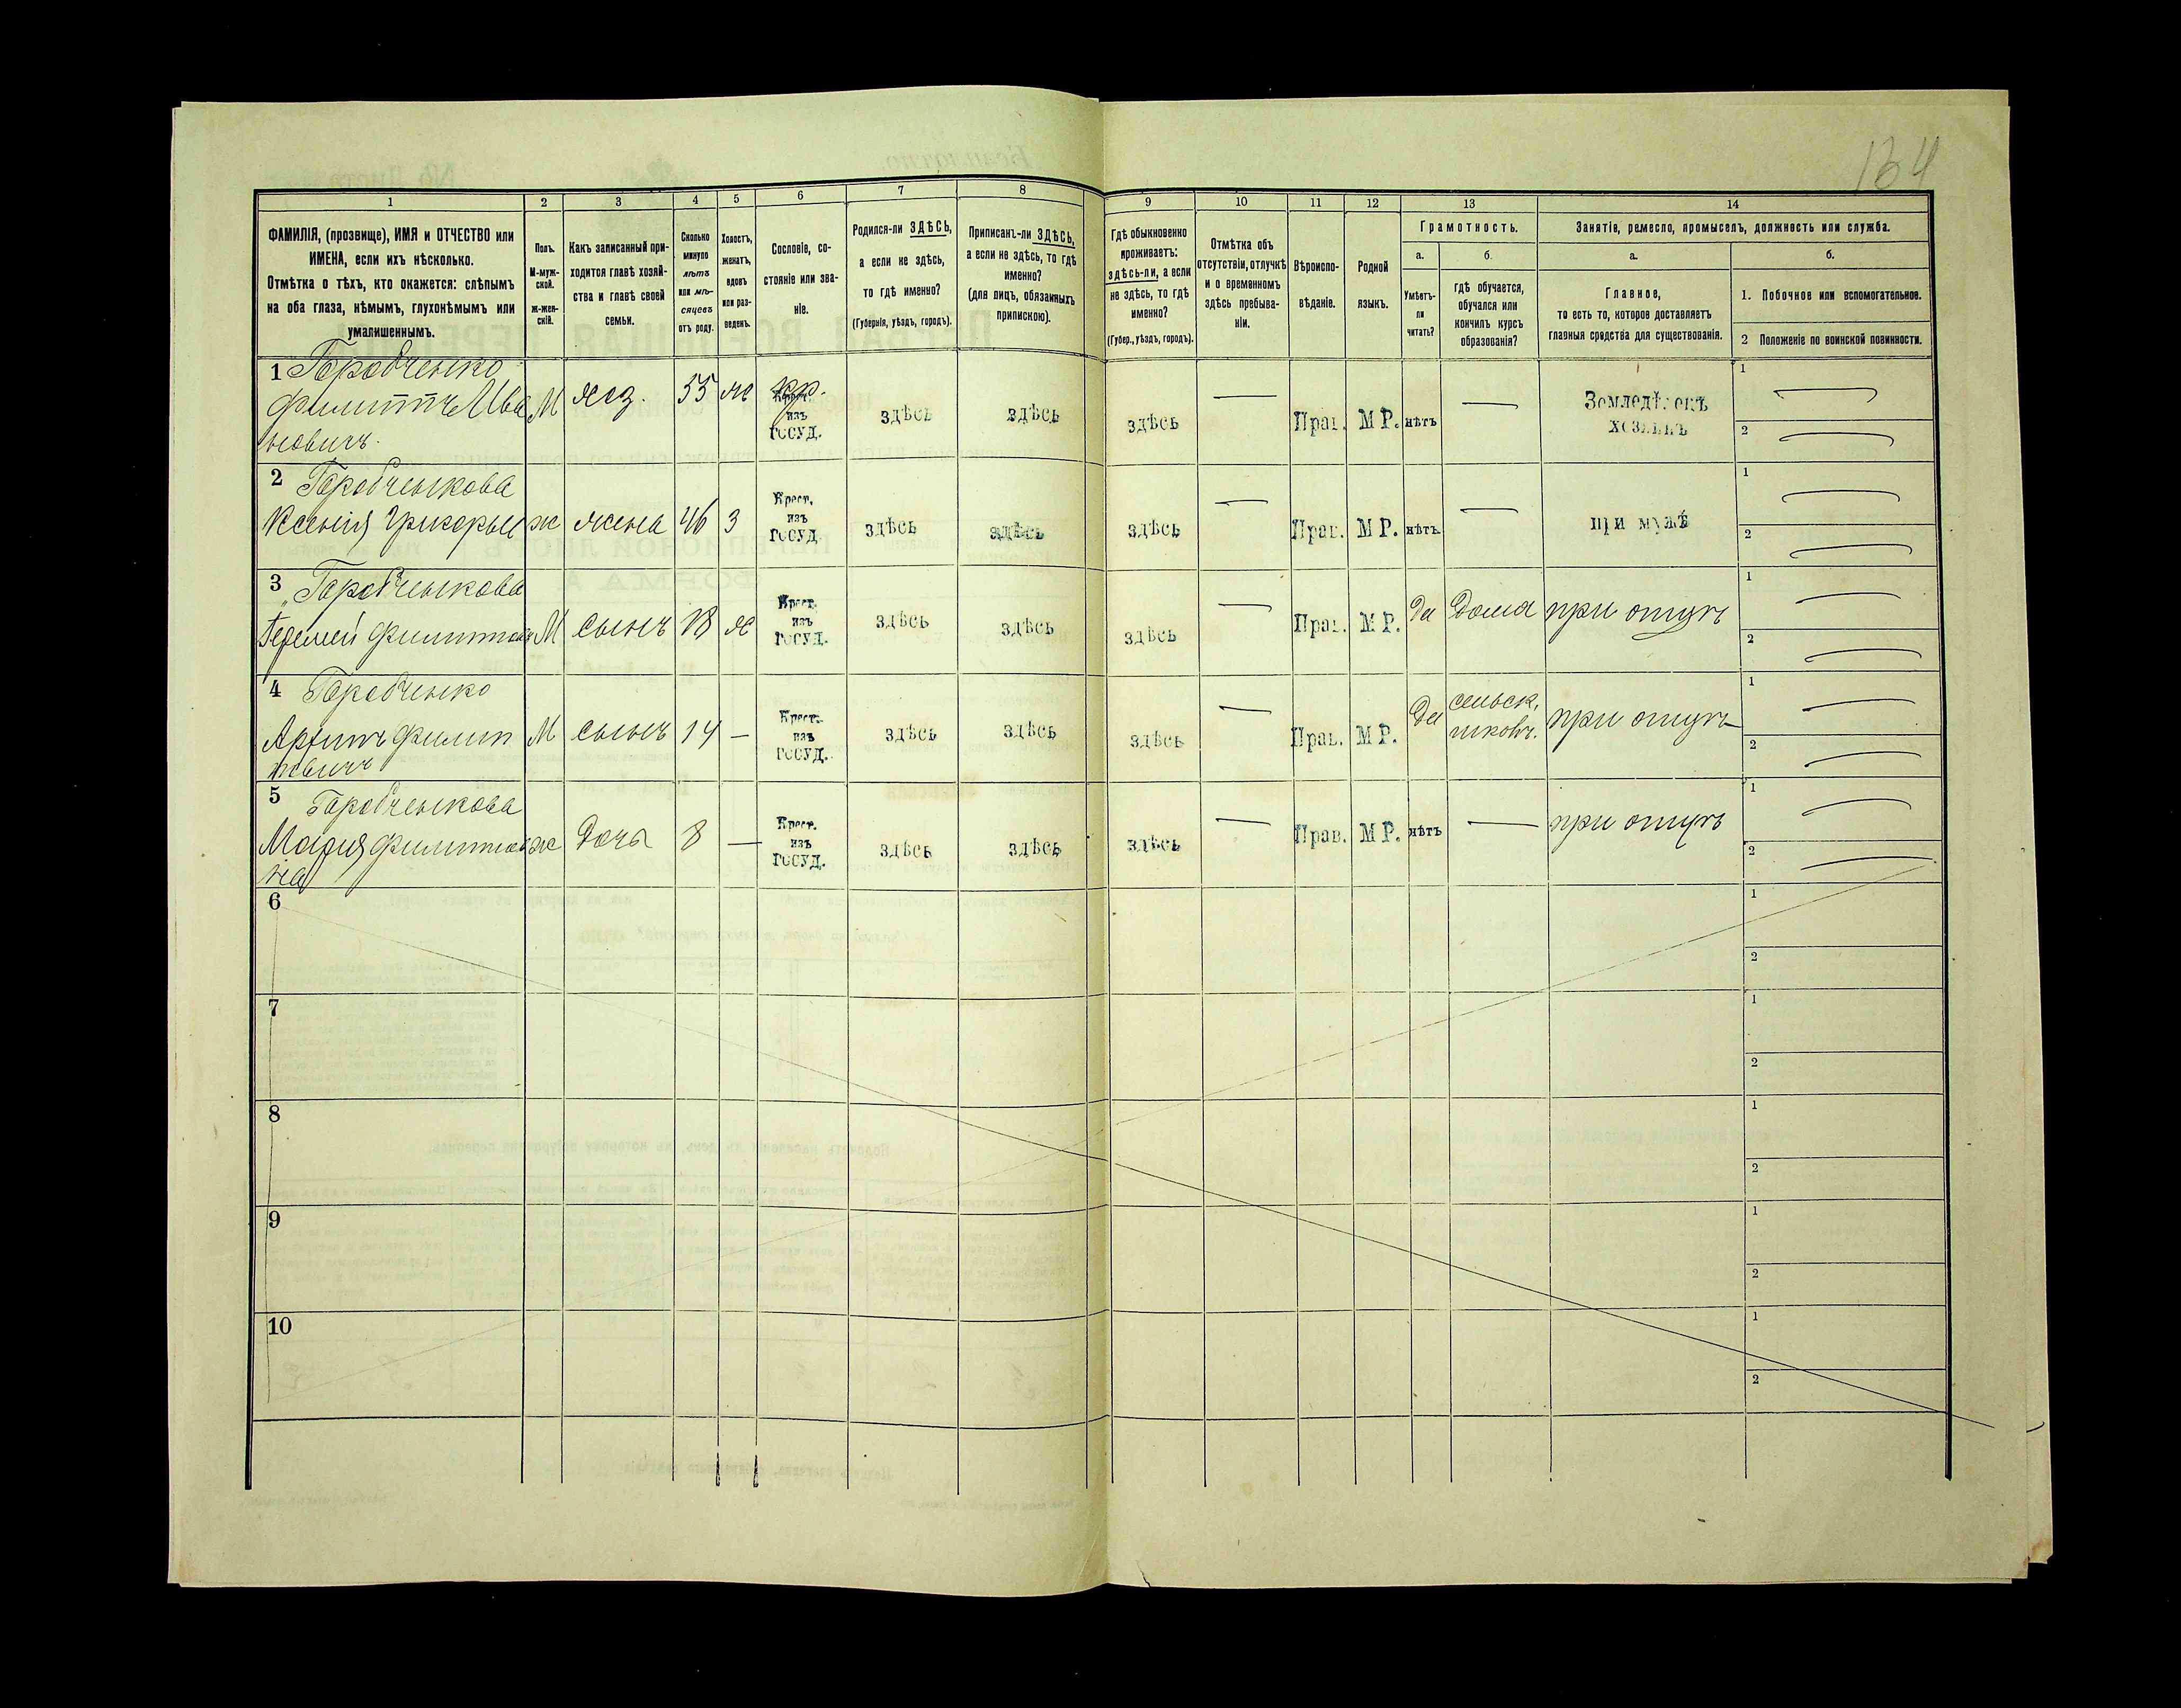 134
1 2 3 4 5 6 7 8 9 10 11 12 13 14
ФАМИЛІЯ, (прозвище), ИМЯ и ОТЧЕСТВО или
ИМЕНА, если ихъ нѣсколько.
Отмѣтка о тѣхъ, кто окажется: слѣпымъ
на оба глаза, нѣмымъ, глухонѣмымъ или
умалишеннымъ.
Полъ.
М-муж-
ской.
ж-жен-
скій.
Какъ записанный при-
ходится главѣ хозяй-
ства и главѣ своей
семьи.
Сколько
минуло
лѣтъ
или мѣ-
сяцевъ
отъ роду.
Холостъ,
женатъ,
вдовъ
или раз-
веденъ.
Сословіе, со-
стояніе или зва-
ніе.
Родился-ли ЗДѢСЬ,
а если не здѣсь,
то гдѣ именно?
(Губернія, уѣздъ, городъ).
Приписанъ-ли ЗДѢСЬ,
а если не здѣсь, то гдѣ
именно?
(для лицъ, обязанныхъ
припискою).
Гдѣ обыкновенно
проживаетъ:
здѣсь-ли, а если
не здѣсь, то гдѣ
именно?
(Губер., уѣздъ, городъ).
Отмѣтка объ
отсутствіи, отлучкѣ
и о временномъ
здѣсь пребыва-
ніи.
Вѣроиспо-
вѣданіе.
Родной
языкъ.
Грамотность.
а.
Умѣетъ-
ли
читать?
б.
гдѣ обучается,
обучался или
кончилъ курсъ
образованія?
Занятіе, ремесло, промыселъ, должность или служба.
а.
Главное,
то есть то, которое доставляетъ
главныя средства для существованія.
б.
1. Побочное или вспомогательное.
2 Положеніе по воинской повинности.
1
Филиппъ Ива
новичъ.
М хоз. 55 ж кр. Крест. изъ госуд. здѣсь здѣсь здѣсь — Прав. М Р. нѣтъ — Земледѣлецъ хозяинъ 1 — 2 —
2
Ксенія Григорьев ж жена 46 З Крест. изъ госуд. здѣсь здѣсь здѣсь — Прав. М Р. нѣтъ — при мужѣ 1 — 2 —
3
М сынъ 18 х Крест. изъ госуд. здѣсь здѣсь здѣсь — Прав. М Р. Да Дома при отцѣ 1 — 2 —
4
Филип
повичъ
М сынъ 14 — Крест. изъ госуд. здѣсь здѣсь здѣсь — Прав. М Р. Да сельск. при отцѣ 1 — 2 —
5
Марія Филиппов
на
ж Дочь 8 — Крест. изъ госуд. здѣсь здѣсь здѣсь — Прав. М Р. нѣтъ — при отцѣ 1 — 2 —
6 1 2
7 1 2
8 1 2
9 1 2
10 1 2